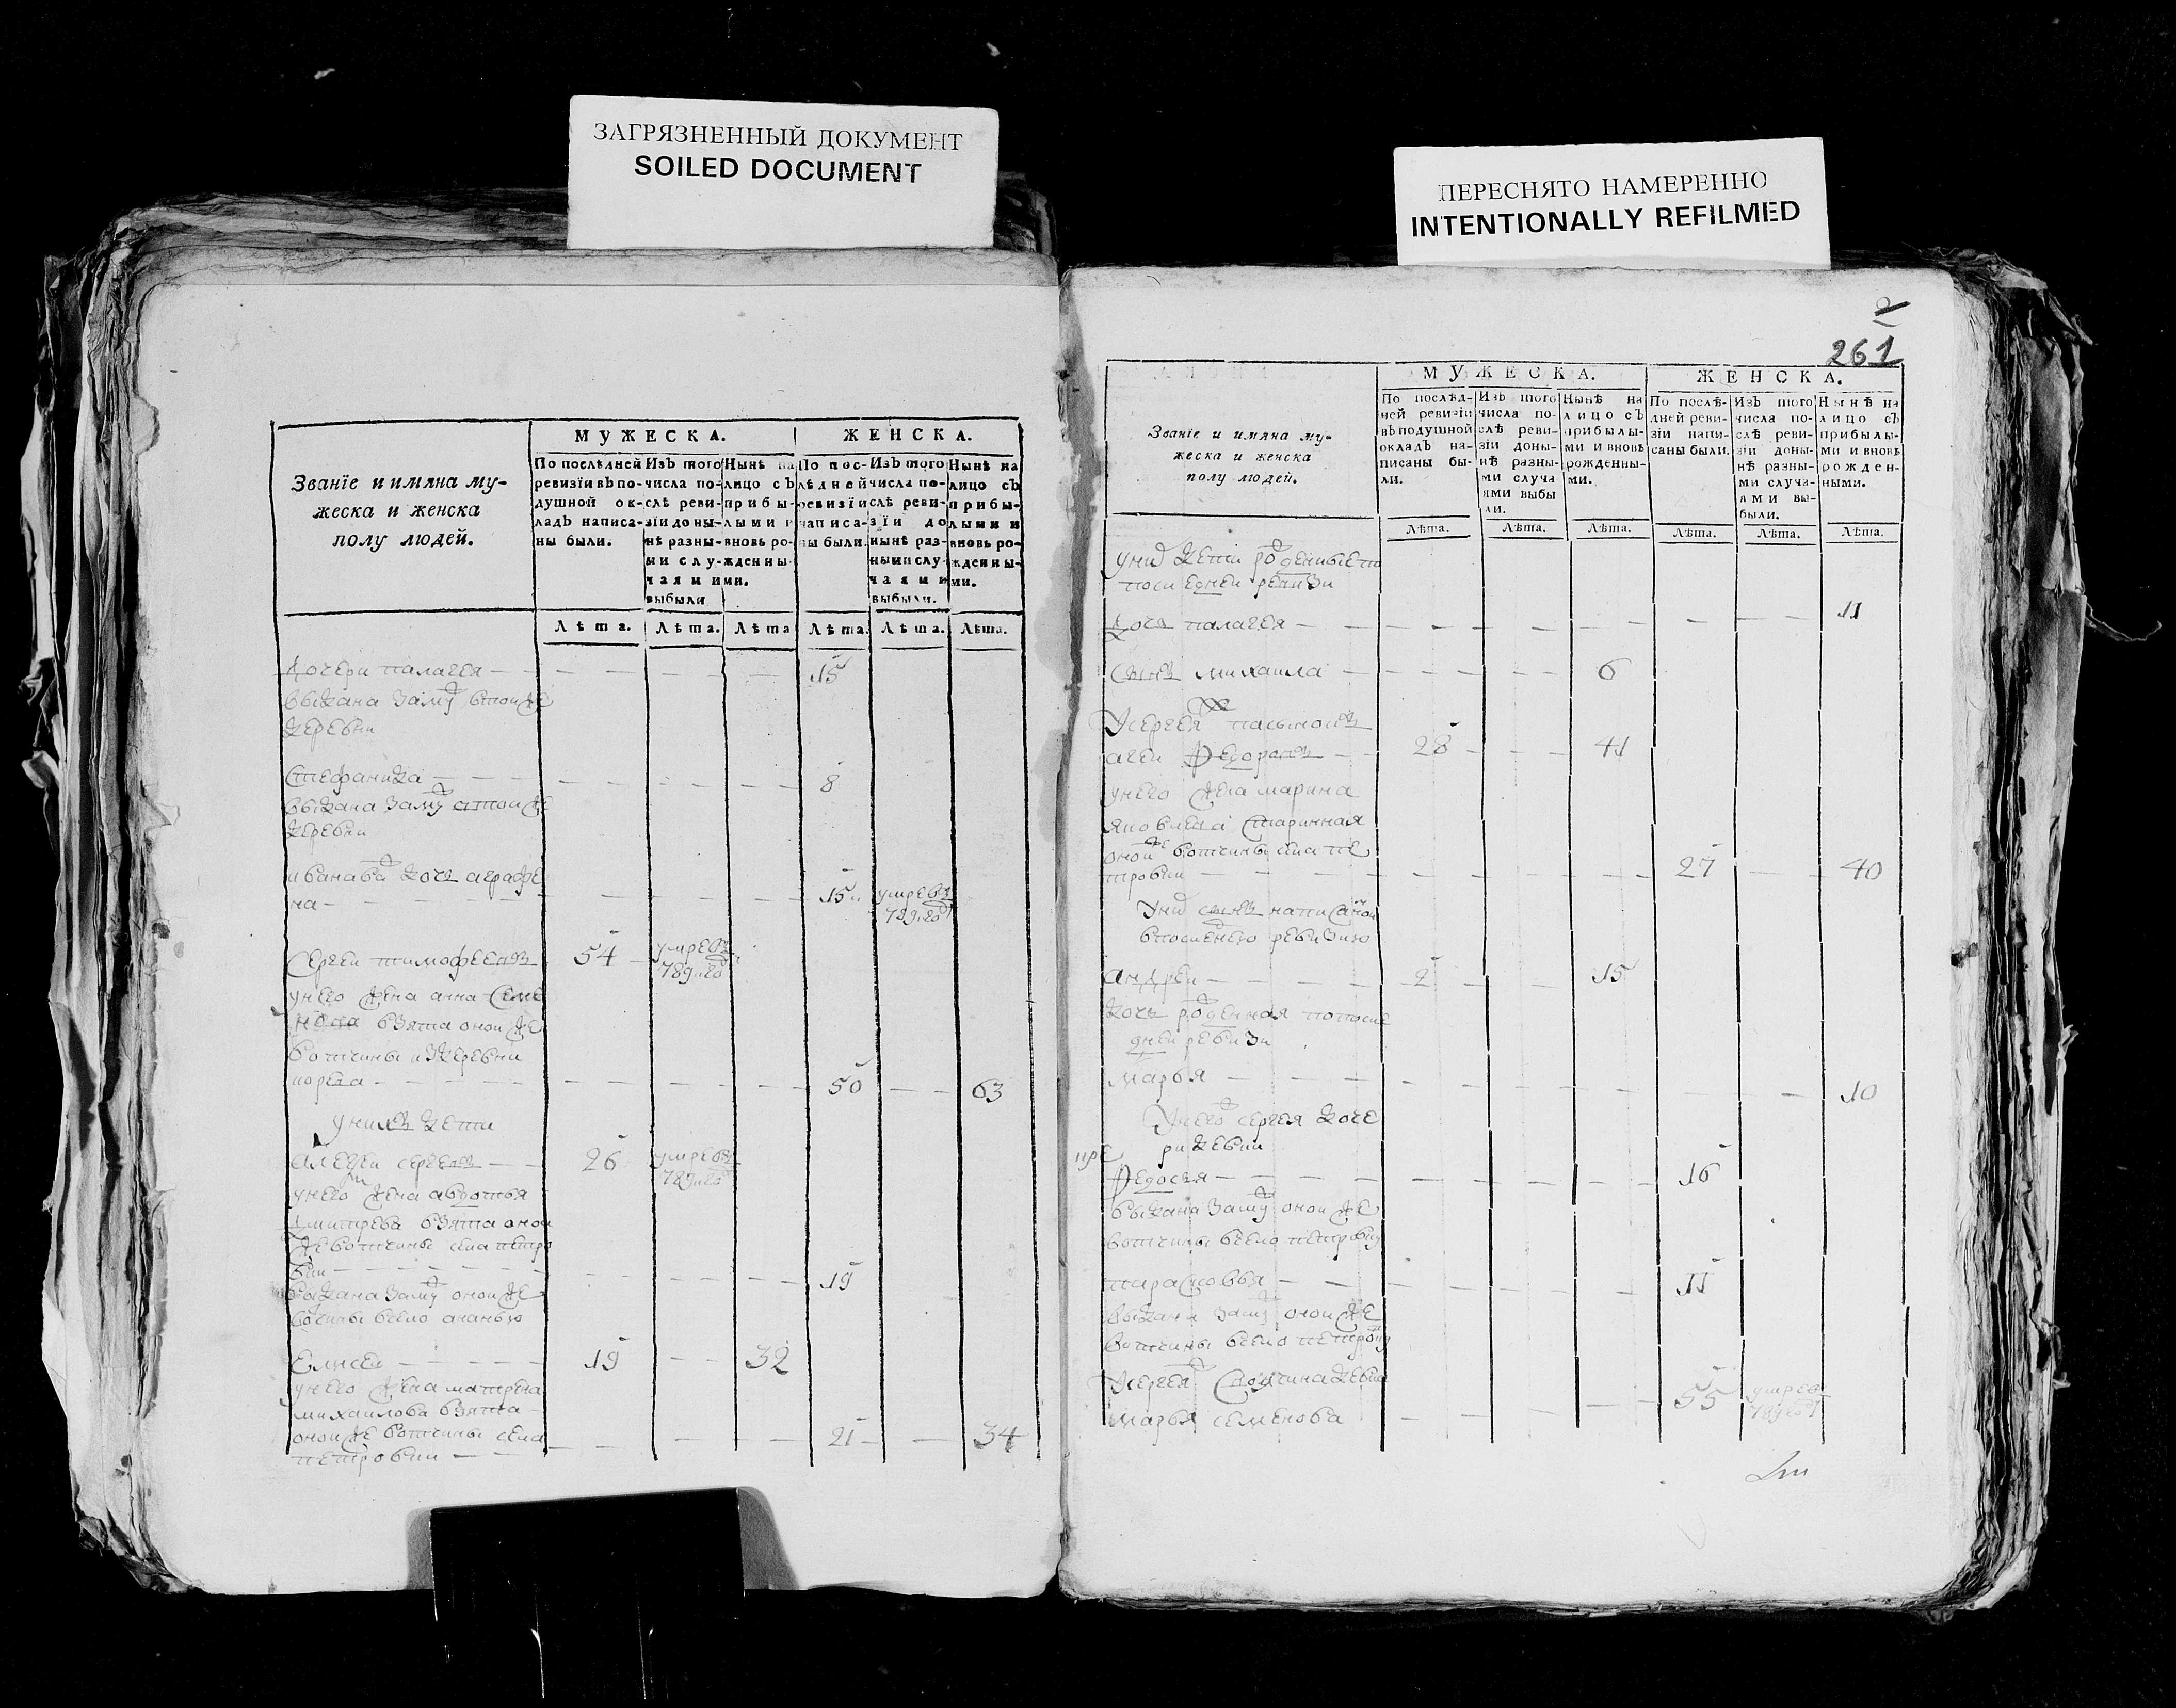 ЗАГРЯЗНЕННЫЙ ДОКУМЕНТ
SOILED DOCUMENT
ПЕРЕСНЯТО НАМЕРЕННО
INTENTIONALLY REFILMED
Званїе и имяна му-
жеска и женска
полу людей.
МУЖЕСКА.
ЖЕНСКА.
По послѣдней
ревизіи въ по-
душной ок-
ладъ написа-
ны были.
Изъ того
числа по-
слѣ реви-
зіи доны-
нѣ разны-
ми слу-
чаями
выбыли
Нынѣ на
лицо съ
прибы-
лыми и
вновь ро-
жденны-
ми.
По пос-
лѣдней
ревизіи
написа-
ны были.
Изъ того
числа по-
слѣ реви-
зіи до
нынѣ раз-
ными слу-
чаями
выбыли.
Нынѣ на
лицо съ
прибы-
лыми и
вновь ро-
жденны-
ми.
Лѣта. Лѣта. Лѣта Лѣта. Лѣта. Лѣта.
дочери палагея 15
выдана замуж втои же
деревни
стефанида 8
выдана замуж втои же
деревни
иванава дочь аграфе
на 15 умре
789 год
сергеи тимофеевъ 54 умре
789 год
унего жена анна семе
нова взята онои же
вотчины издеревни
50 63
унихъ дети
алексеи сергеевъ 26 умре
789 год
унего жена авдотья
дмитрева взята онои
же вотчины села петро
вки 19
выдана замуж онои же
вотчины вселo ананью
елисеи 19 32
унего жена матрена
михаилова взята
онои же вотчины села
петровки 21 34
2
261
Званїе и имяна му-
жеска и женска
полу людей.
МУЖЕСКА.
ЖЕНСКА.
По послѣд-
ней ревизіи
въ подушной
окладъ на-
писаны бы-
ли.
Изъ того
числа по-
слѣ реви-
зіи доны-
нѣ разны-
ми случа
ями выбы
ли.
Нынѣ на
лицо съ
прибылы-
ми и вновь
рожденны-
ми.
По послѣ-
дней реви-
зіи напи-
саны были.
Изъ того
числа по-
слѣ реви-
зіи доны-
нѣ разны-
ми случа-
ями вы-
были.
Нынѣ на
лицо съ
прибылы-
ми и вновь
рожден-
ными.
Лѣта. Лѣта. Лѣта. Лѣта. Лѣта. Лѣта.
уних дети рожденные
последнеи ревизи
дочь палагея 11
сынъ михаила 6
усергея пасынокъ
федоровъ 28 41
унего жена марина
яковлева старинная
онои же вотчины села пе
тровки 27 40
уних сынъ написанои
впоследнею ревизию
андреи 2 15
дочь рожденная попосле
днеи ревизи
марья 10
унего сергея доче
ри девки
федосья 16
выдана замуж онои же
вотчины всело петровку
парасковья 11
выдана замуж онои же
вотчины всело петровку
усергея девка
марья семенова 55 умре
789 год